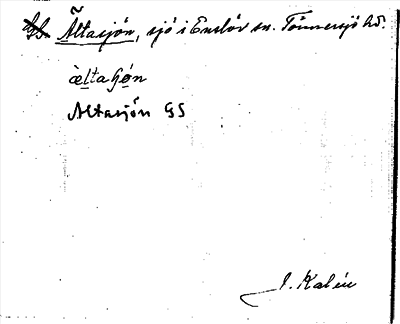 Ältasjön, sjö i Enslöv sn. Tönnersjö hd.
Altasjön GS
J. Kalén